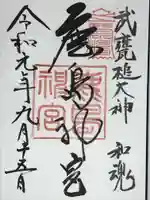 武甕槌大神 和魂
鹿島神宮
令和元年九月十五日